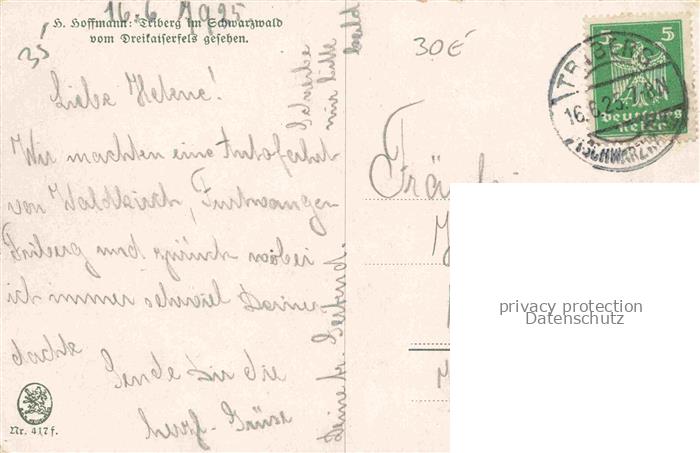 16.6.1925
H. Hoffmann: Triberg im Schwarzwald
vom Dreikaiserfels gesehen.
35
30€
Liebe Helene!
Wir machten eine Autofahrt
von Waldkirch, Furtwangen
Triberg und zurück wobei
ich immer so viel Deiner
dachte
Sende Dir die
herzl. Grüsse
Deine
Schreibe
mir bitte
bald
Nr. 417f.
Fräulein
5 5
Deutsches
Reich
TRIBERG
16.6.25.7-8N
(SCHWARZW
privacy protection
Datenschutz